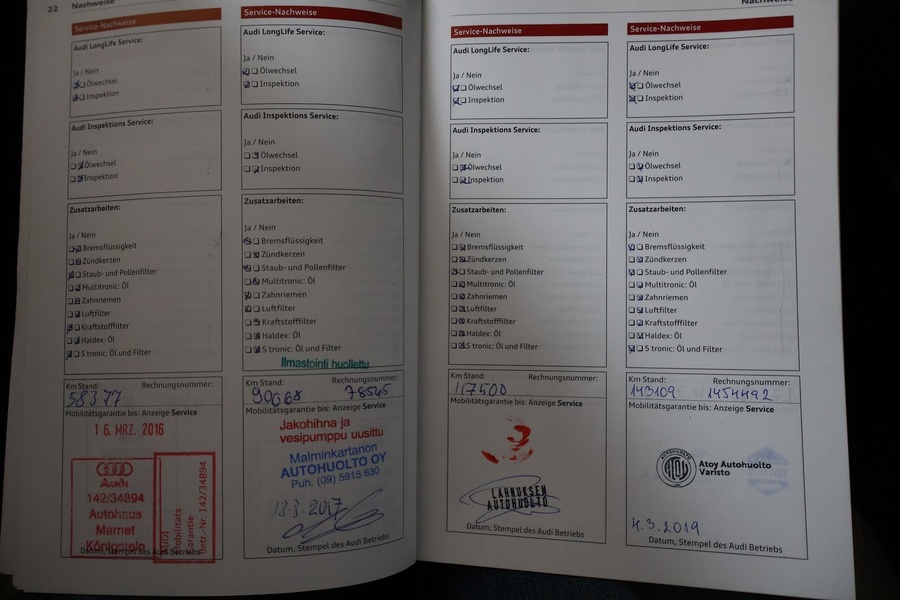 22 Nachweise
Service-Nachweise
Audi LongLife Service:
Ja / Nein
Ölwechsel
Inspektion
Audi Inspektions Service:
Ja / Nein
Ölwechsel
Inspektion
Zusatzarbeiten:
Ja / Nein
Bremsflüssigkeit
Zündkerzen
Staub- und Pollenfilter
Multitronic: Öl
Zahnriemen
Luftfilter
Kraftstofffilter
Haldex: Öl
S tronic: Öl und Filter
Km Stand: Rechnungsnummer:
58377
Mobilitätsgarantie bis: Anzeige Service
16. MRZ. 2016
Audi
142/34894
Autohaus
Marnet
Königstein
AUDI
Mobilitäts
garantie
Betr.-Nr. 142/34894
Datum, Stempel des Audi Betriebs
Service-Nachweise
Audi LongLife Service:
Ja / Nein
Ölwechsel
Inspektion
Audi Inspektions Service:
Ja / Nein
Ölwechsel
Inspektion
Zusatzarbeiten:
Ja / Nein
Bremsflüssigkeit
Zündkerzen
Staub- und Pollenfilter
Multitronic: Öl
Zahnriemen
Luftfilter
Kraftstofffilter
Haldex: Öl
S tronic: Öl und Filter
Ilmastointi huollettu
Km Stand: Rechnungsnummer:
90668 78545
Mobilitätsgarantie bis: Anzeige Service
Jakohihna ja
vesipumppu uusittu
Malminkartanon
AUTOHUOLTO OY
Puh. (09) 5915 630
18.8.2017
Datum, Stempel des Audi Betriebs
Nachweise
Service-Nachweise
Audi LongLife Service:
Ja / Nein
Ölwechsel
Inspektion
Audi Inspektions Service:
Ja / Nein
Ölwechsel
Inspektion
Zusatzarbeiten:
Ja / Nein
Bremsflüssigkeit
Zündkerzen
Staub- und Pollenfilter
Multitronic: Öl
Zahnriemen
Luftfilter
Kraftstofffilter
Haldex: Öl
S tronic: Öl und Filter
Km Stand: Rechnungsnummer:
117500
Mobilitätsgarantie bis: Anzeige Service
3
LAHNUKSEN
AUTOHUOLTO
Datum, Stempel des Audi Betriebs
Service-Nachweise
Audi LongLife Service:
Ja / Nein
Ölwechsel
Inspektion
Audi Inspektions Service:
Ja / Nein
Ölwechsel
Inspektion
Zusatzarbeiten:
Ja / Nein
Bremsflüssigkeit
Zündkerzen
Staub- und Pollenfilter
Multitronic: Öl
Zahnriemen
Luftfilter
Kraftstofffilter
Haldex: Öl
S tronic: Öl und Filter
Km Stand: Rechnungsnummer:
143109 1454492
Mobilitätsgarantie bis: Anzeige Service
AUTOHUOLTO
ATOY
Atoy Autohuolto
Varisto
4.3.2019
Datum, Stempel des Audi Betriebs